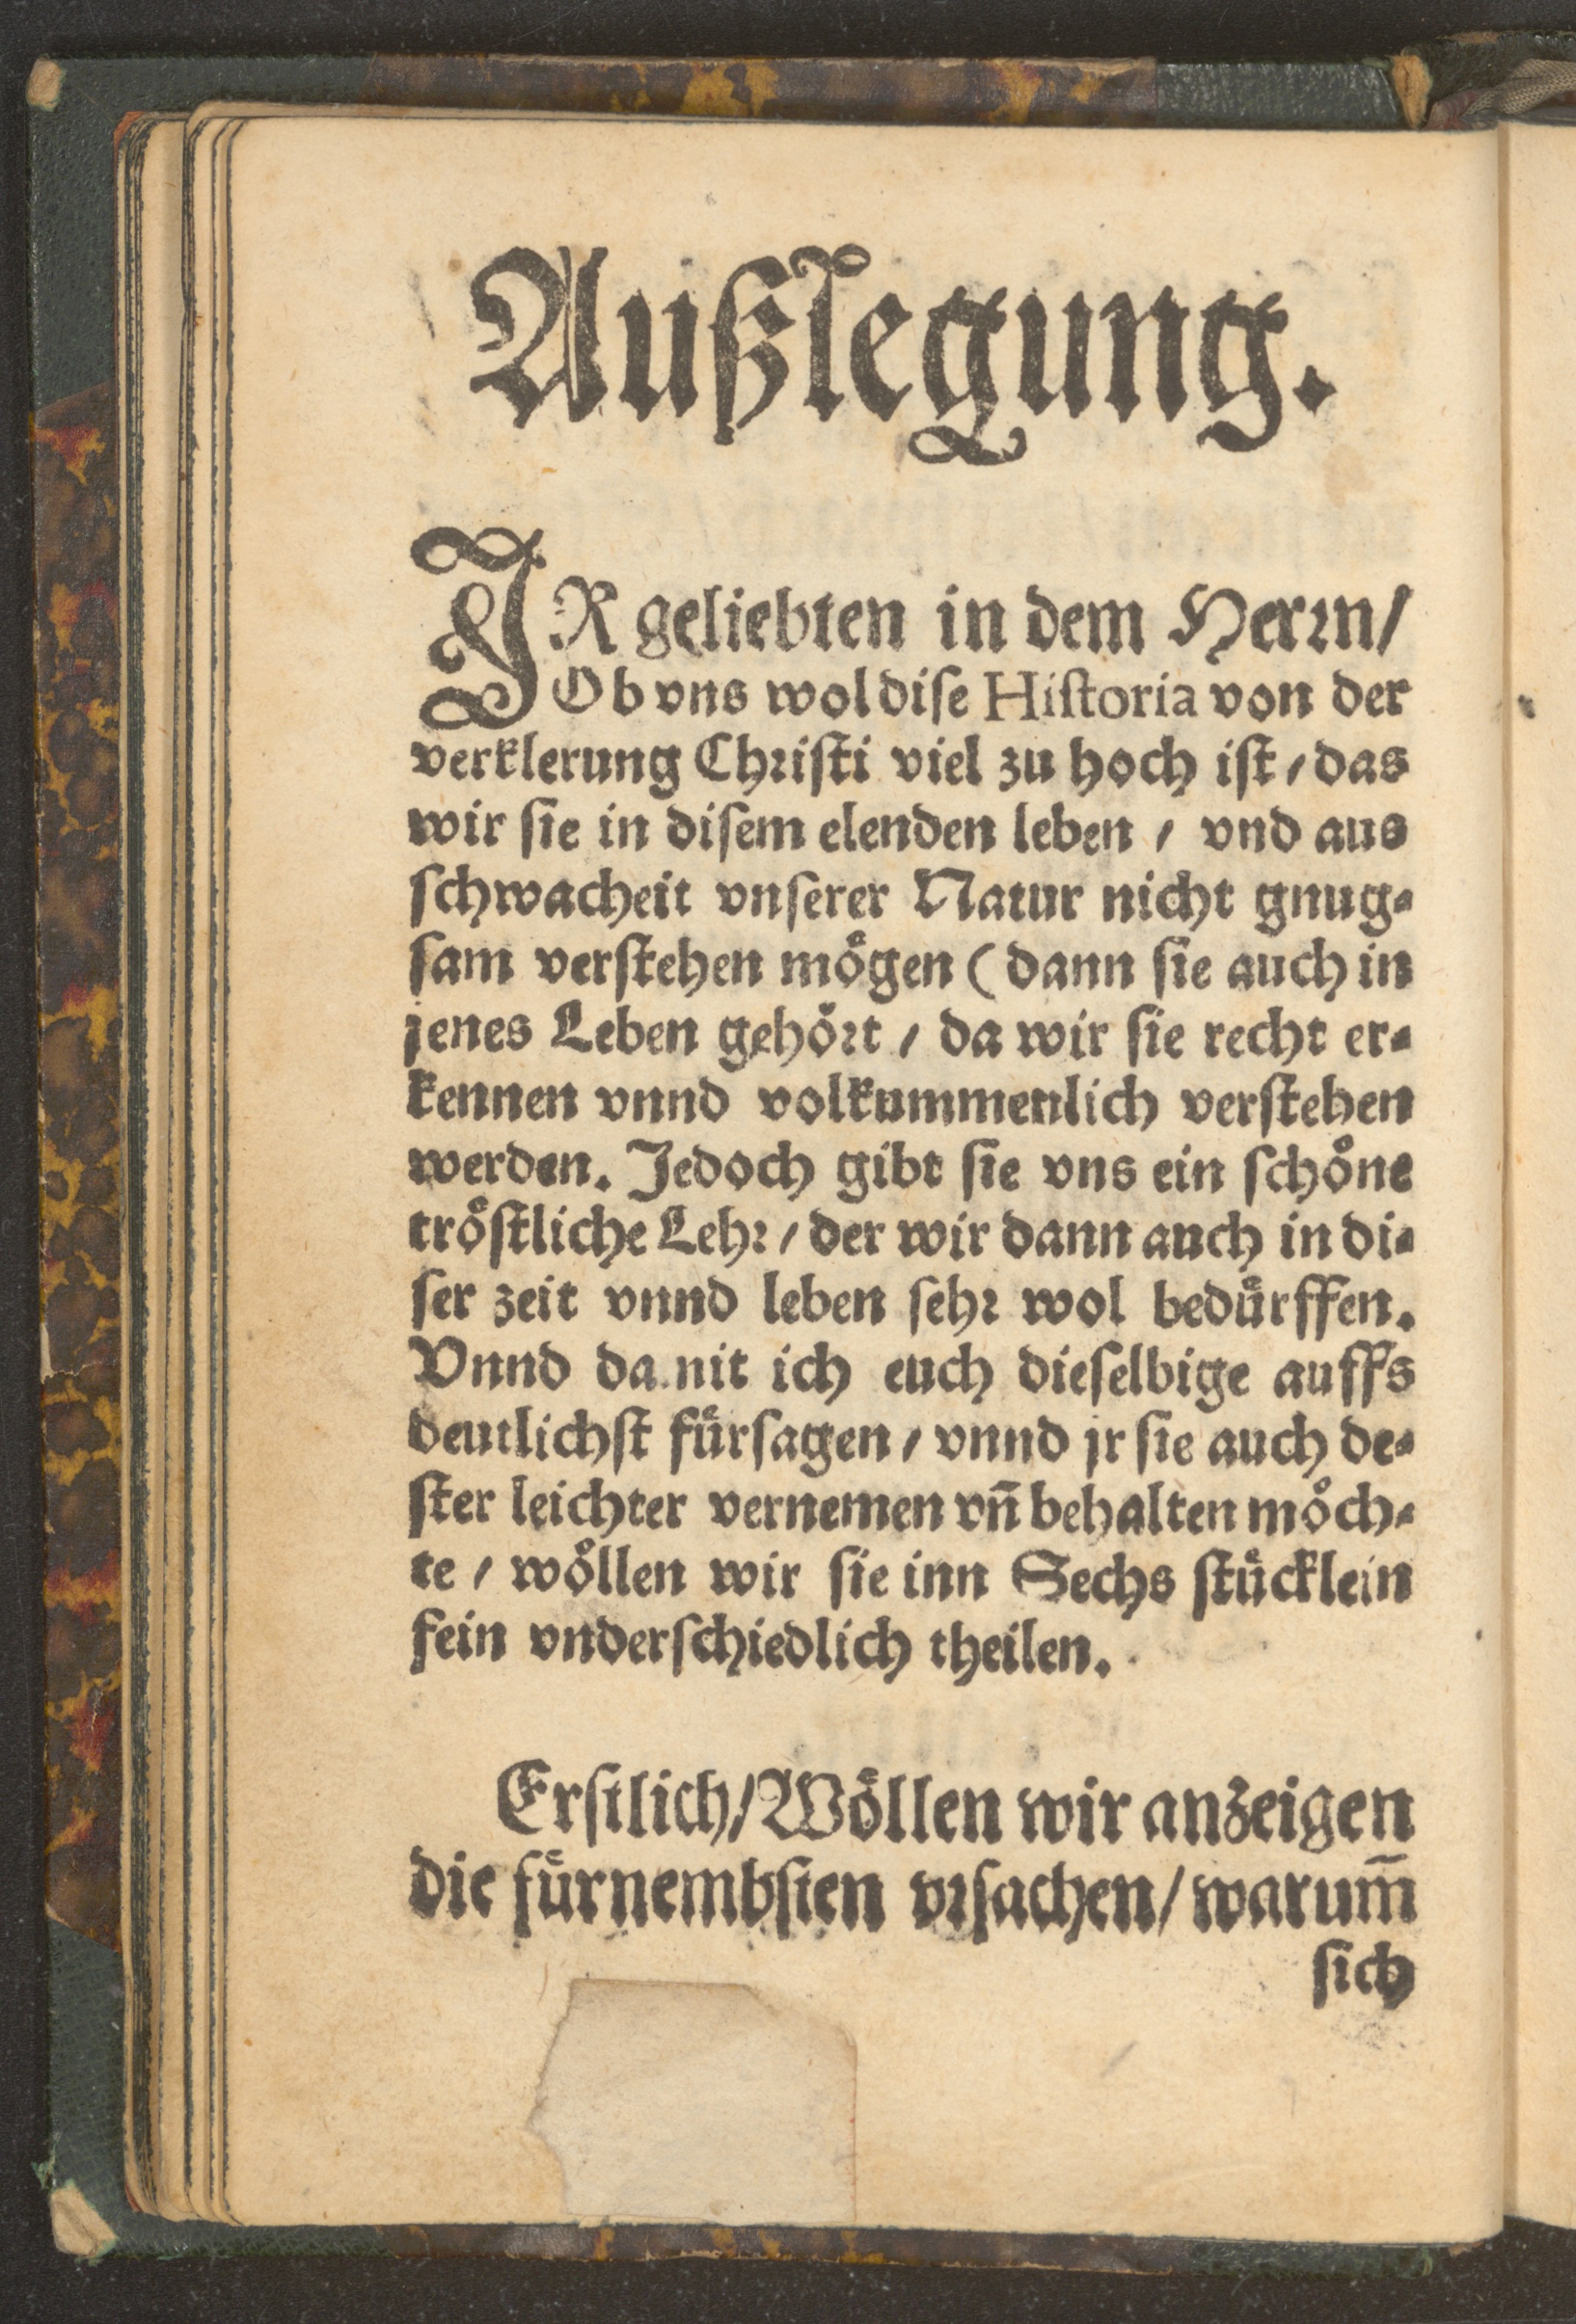 Außlegung.
JR geliebten in dem Herrn/
Ob vns wol diſe Hiſtoria von der
verklerung Chriſti viel zu hoch iſt/ das
wir ſie in diſem elenden leben / vnd aus
ſchwacheit vnſerer Natur nicht gnug⸗
ſam verſtehen moͤgen (dann ſie auch in
jenes Leben gehoͤrt / da wir ſie recht er⸗
kennen vnnd volkummenlich verſtehen
werden. Jedoch gibt ſie vns ein ſchoͤne
troͤſtliche Lehr/ der wir dann auch in di⸗
ſer zeit vnnd leben ſehr wol beduͤrffen.
Vnnd damit ich euch dieſelbige auffs
deutlichſt fuͤrſagen/ vnnd jr ſie auch de⸗
ſter leichter vernemen vn̄ behalten moͤch⸗
te / woͤllen wir ſie inn Sechs ſtuͤcklein
fein vnderſchiedlich theilen.
Erſtlich/ Woͤllen wir anzeigen
die fuͤrnembſten vrſachen/ warum̄
ſich